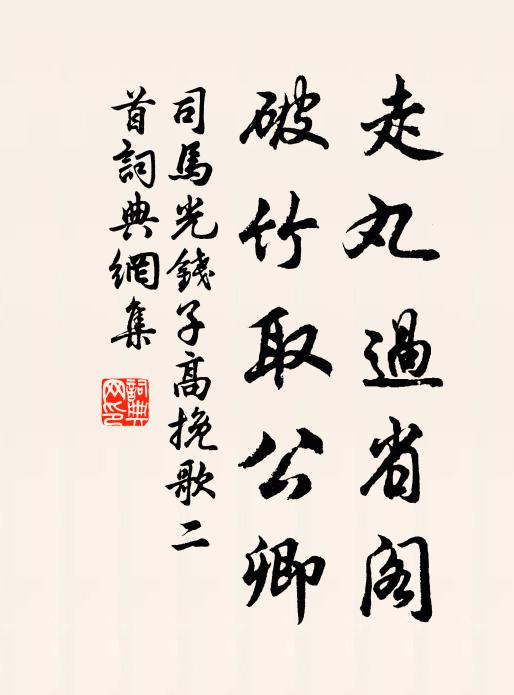 走丸過省阁
破竹取公卿
司馬光錢子高挽歌二
首詞典網集
詞典
网印